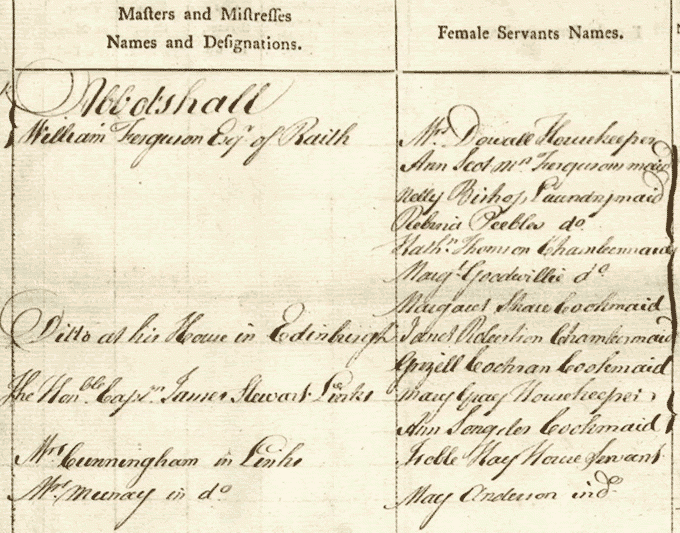 Masters and Mistresses
Names and Designations.
Female Servants Names.
Abbotshall
William Ferguson Esqr. of Raith
Mrs. Dowall Housekeeper
Ann Scot Mrs. Fergusons maid
Nelly Bishop Laundrymaid
Robina Peebles do.
Kathn. Thomson Chambermaid
Margt. Goodwillie do.
Margaret Share Cookmaid
Ditto at his House in Edinburgh
Janet Robertson Chambermaid
Grizell Cochran Cookmaid
The Honble. Captn. James Stewart Links
Mary Gray Housekeeper
Ann Cookmaid
Mrs. Cunningham in Links
Hay House Servant
Mrs. Murray in do.
May Anderson in do.